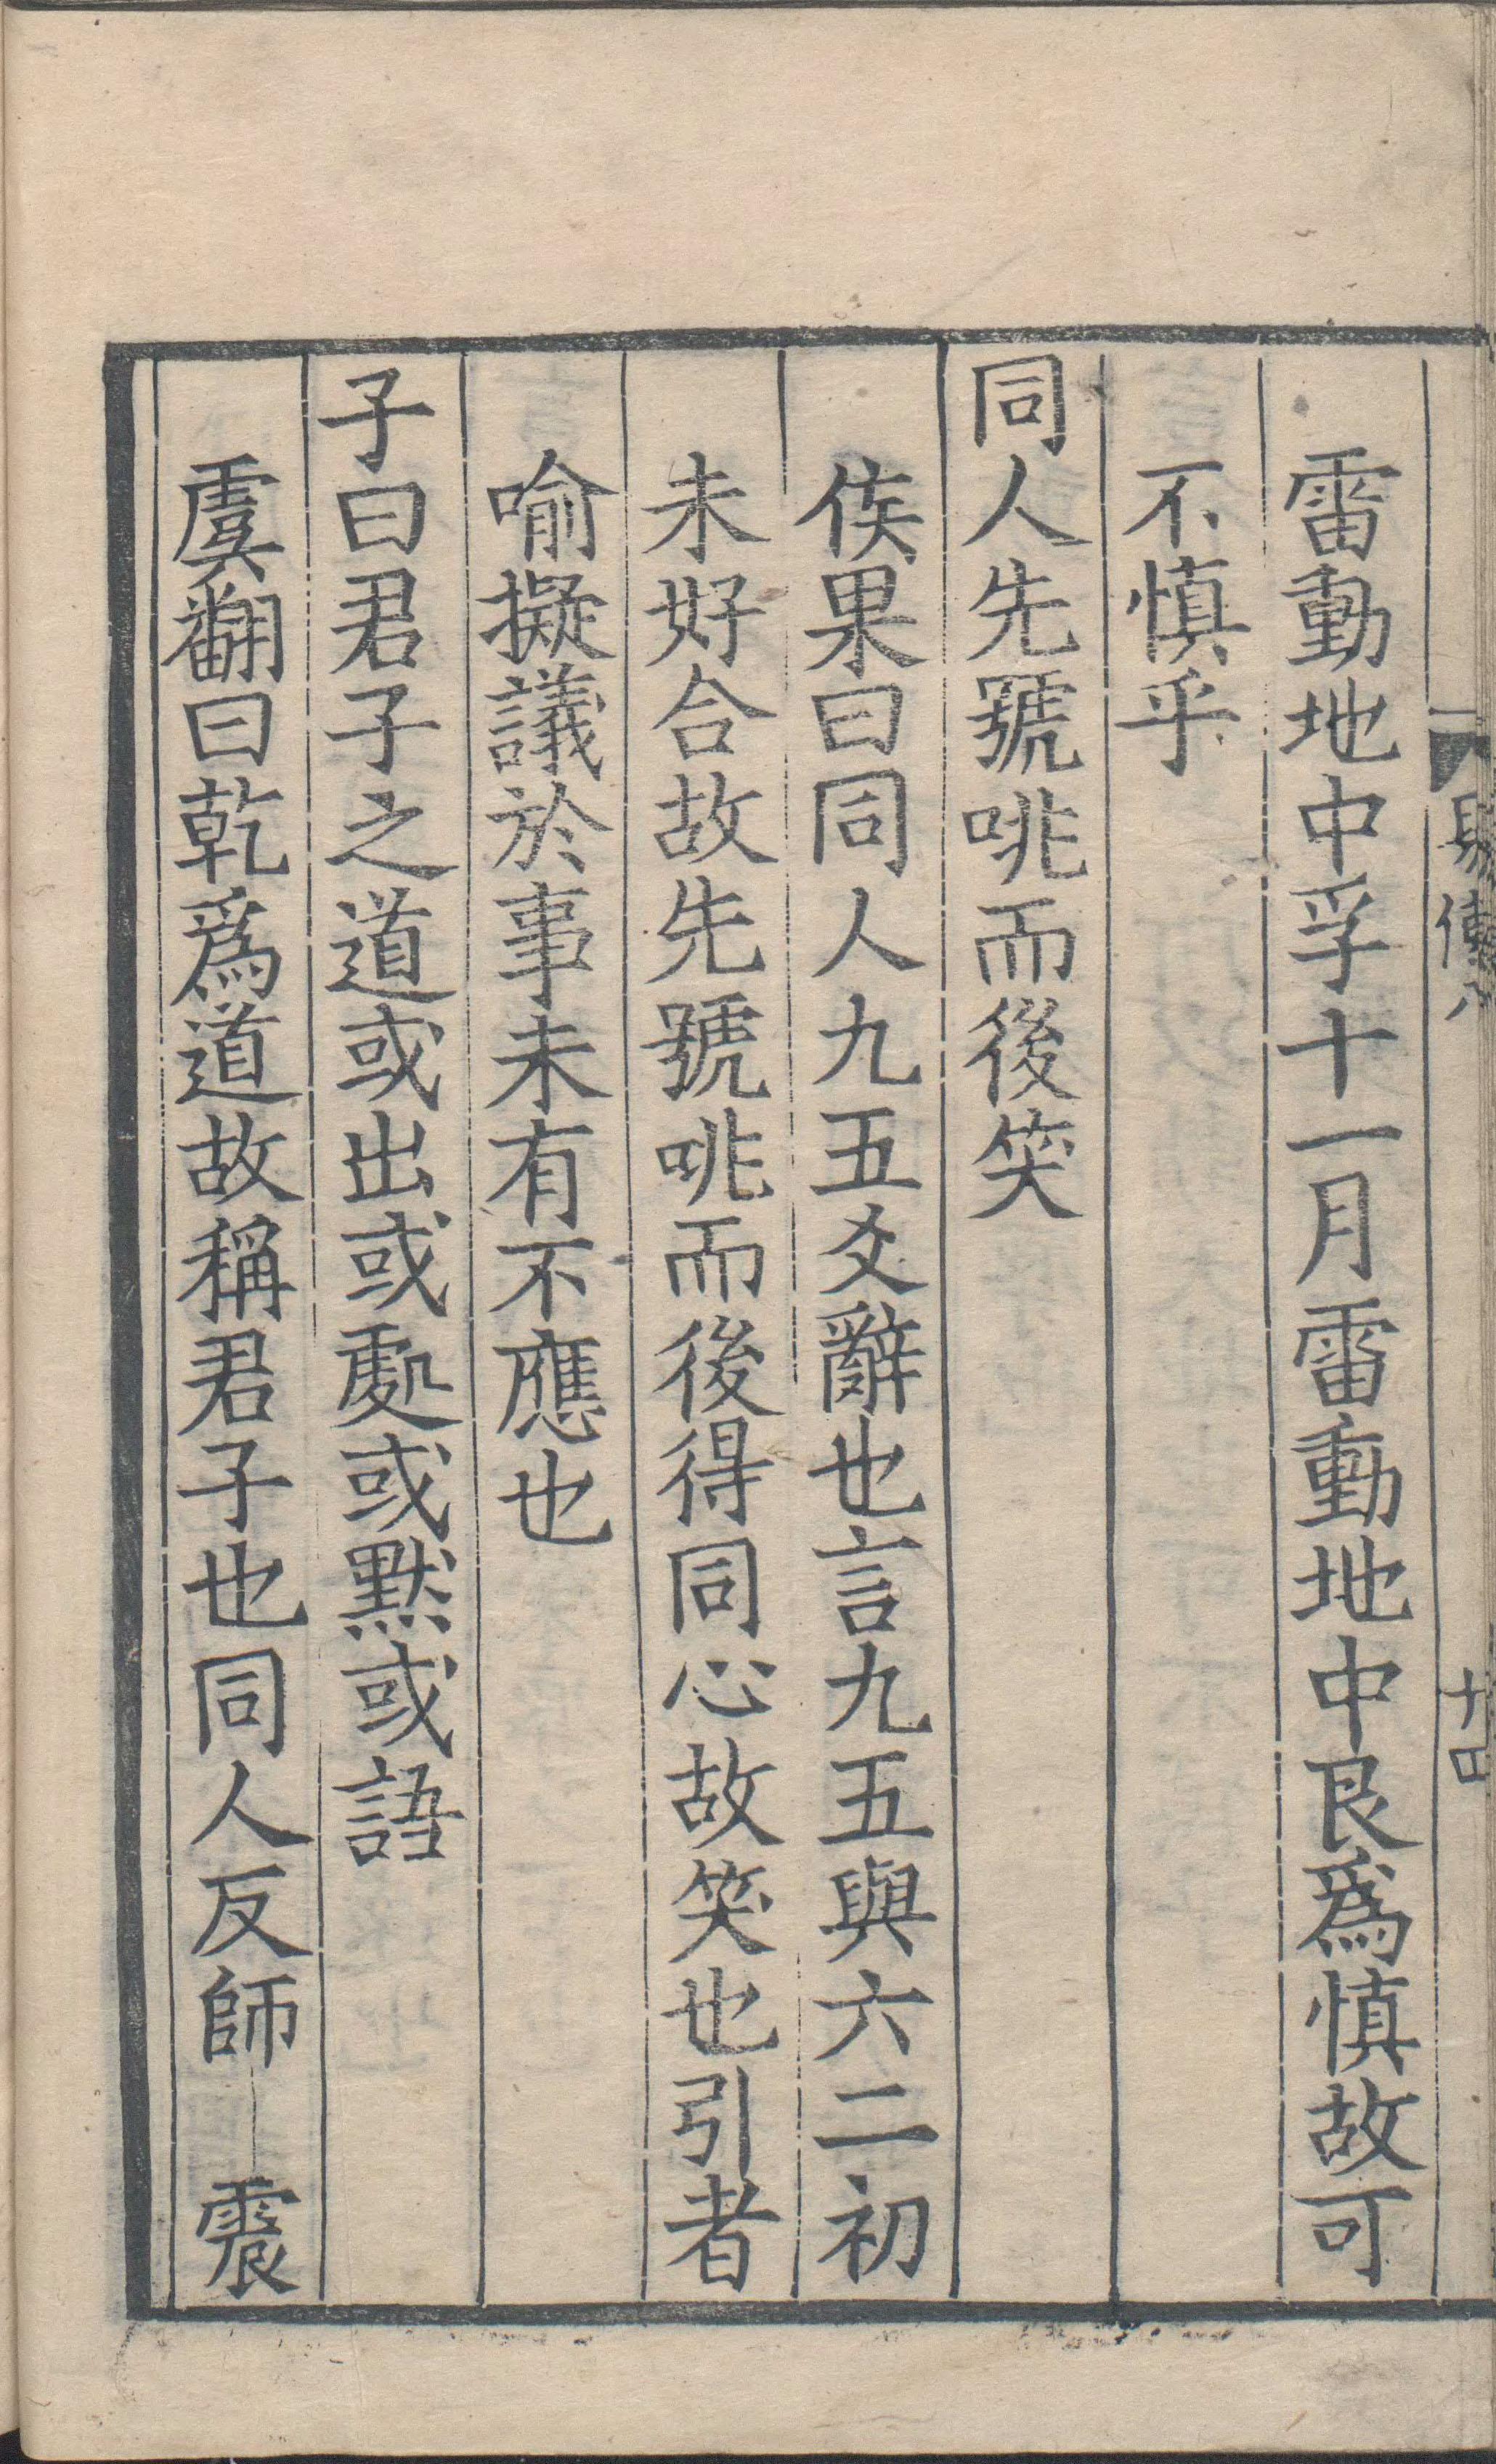 易傳八
十四
雷動地中孚十一月雷動地中艮爲慎故可
不慎乎
同人先號咷而後笑
侯果曰同人九五爻辭也言九五與六二初
未好合故先號咷而後得同心故笑也引者
喻擬議於事未有不應也
子曰君子之道或出或處或默或語
虞翻曰乾爲道故稱君子也同人反師 震